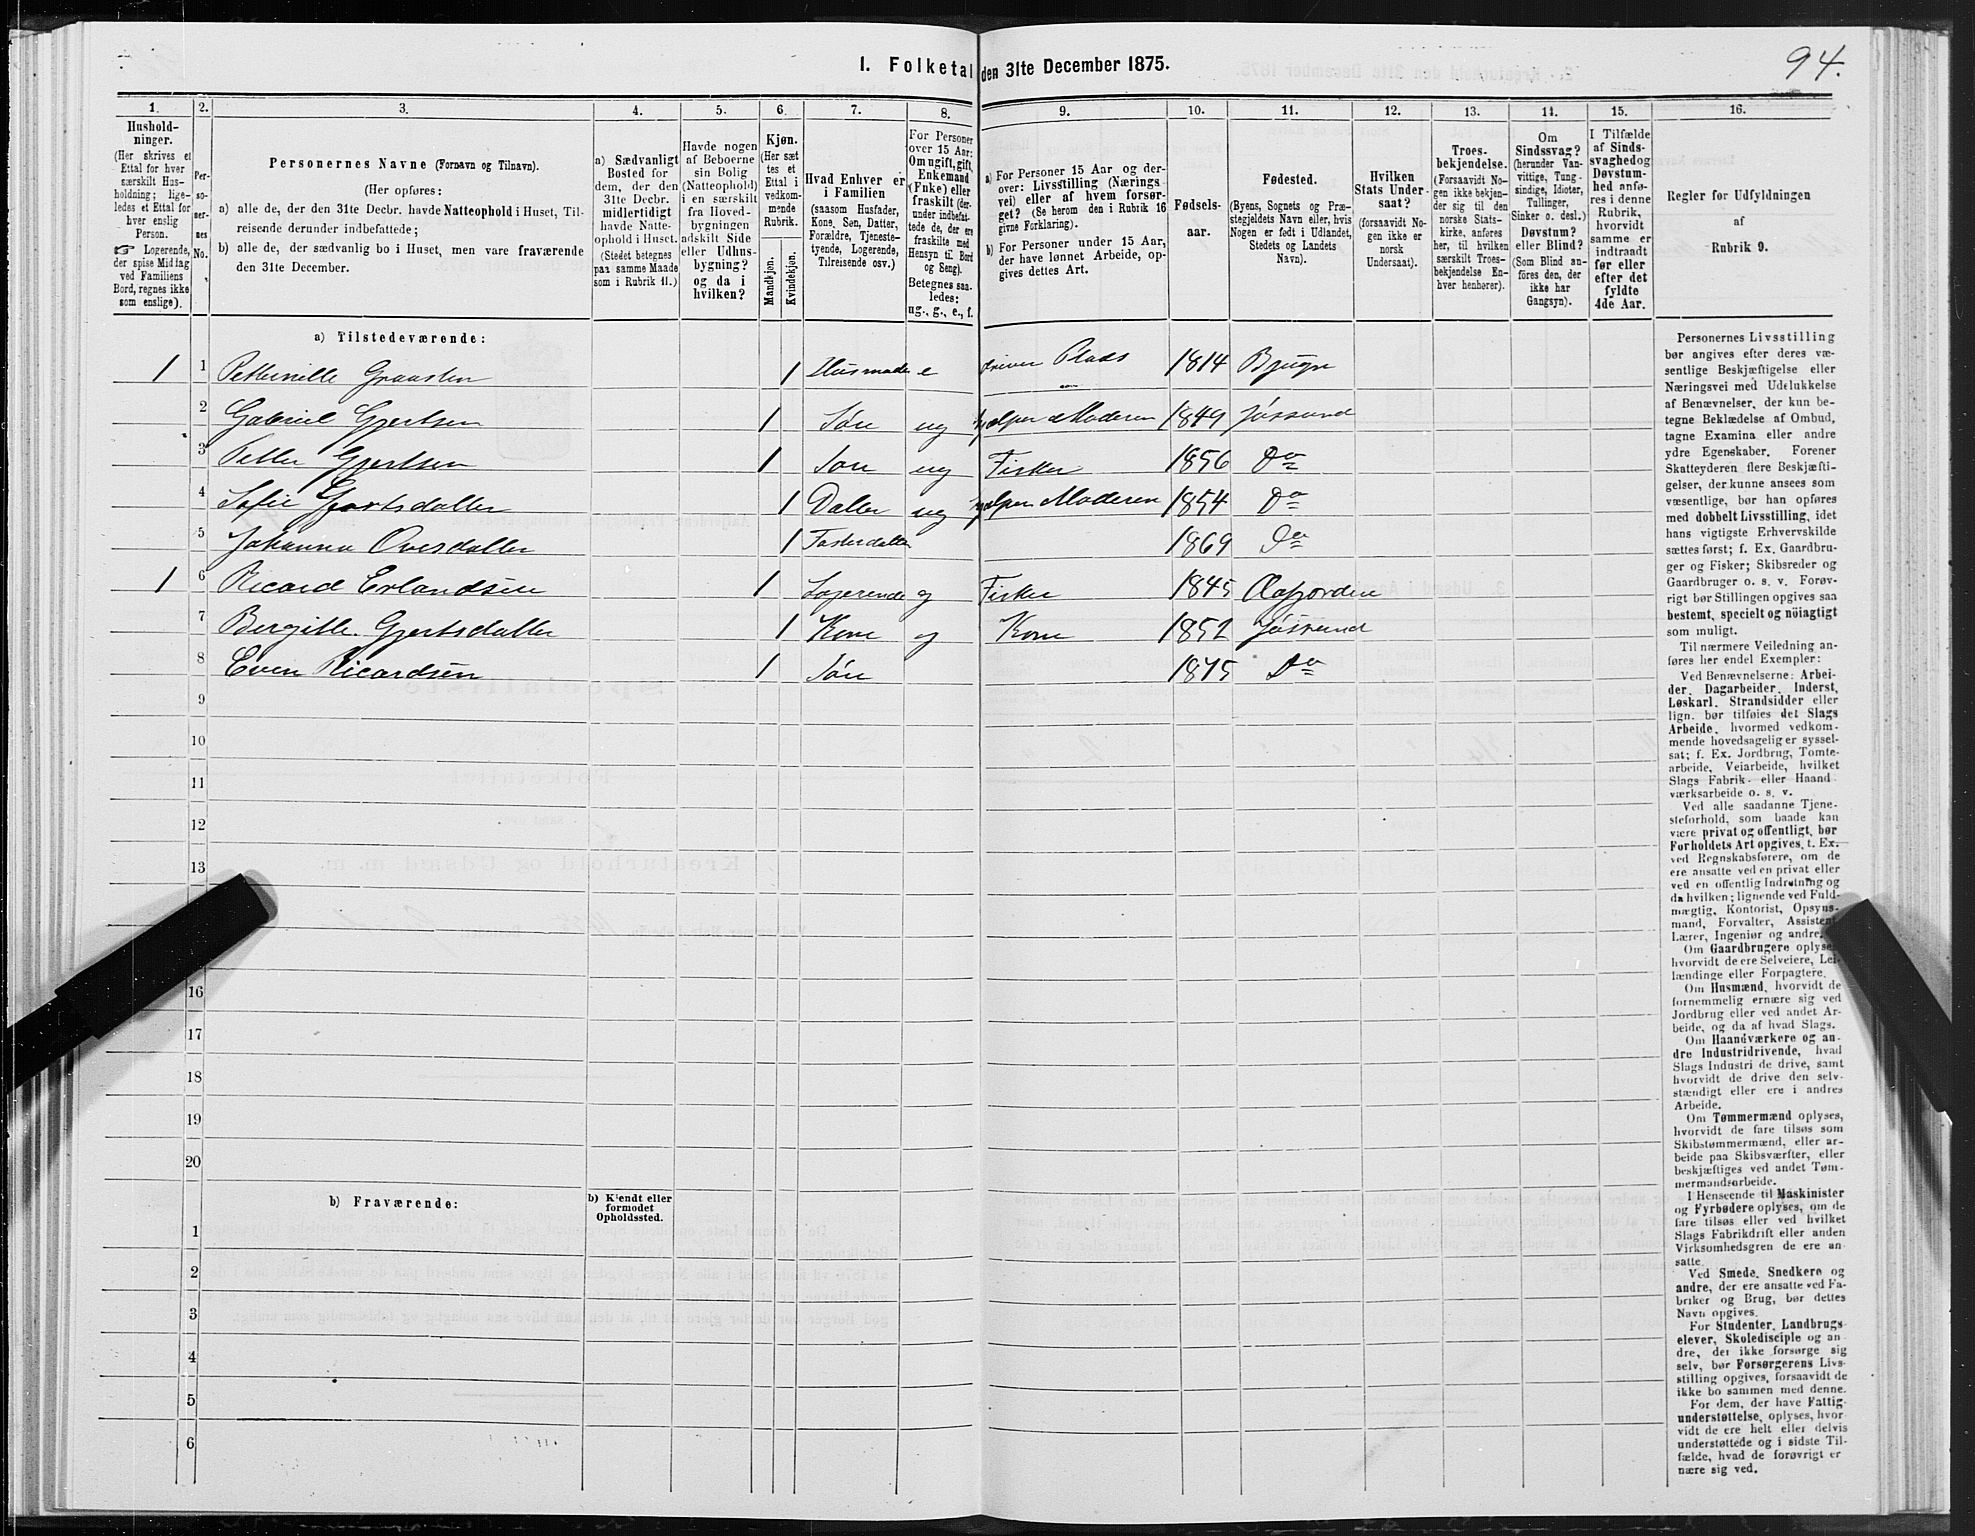 94.
I. Folketal den 31te December 1875.
1. 2. 3. 4. 5. 6. 7. 8. 9. 10. 11. 12. 13. 14. 15. 16.
Hushold-
ninger.
(Her skrives et
Ettal for hver
særskilt Hus-
holdning; lige-
ledes et Ettal for
hver enslig
Person.
☞ Logerende,
der spise Middag
ved Familiens
Bord, regnes ikke
som enslige).
Per-
so-
ner-
nes
No.
Personernes Navne (Fornavn og Tilnavn).
(Her opføres:
a) alle de, der den 31te Decbr. havde Natteophold i Huset, Til-
reisende derunder indbefattede;
b) alle de, der sædvanlig bo i Huset, men vare fraværende
den 31te December.
a) Sædvanligt
Bosted for
dem, der den
31te Decbr.
midlertidigt
havde Natte-
ophold i Huset.
(Stedet betegnes
paa samme Maade
som i Rubrik 11.)
Havde nogen
af Beboerne
sin Bolig
(Natteophold)
i en særskilt
fra Hoved-
bygningen
adskilt Side
eller Udhus-
bygning?
og da i
hvilken?
Kjøn.
(Her sæt
tes et
Ettal i
vedkom-
mende
Rubrik.
Mandkjøn.
Kvindekjøn.
Hvad Enhver er
i Familien
(saasom Husfader,
Kone, Søn, Datter,
Forældre, Tjeneste-
tyende, Logerende,
Tilreisende osv.)
For Personer
over 15 Aar:
Om ugift, gift,
Enkemand
(Enke) eller
fraskilt (der-
under indbefat-
tede de, der ere
fraskilte med
Hensyn til Bord
og Seng).
Betegnes saa-
ledes:
ug., g., e., f.
a) For Personer 15 Aar og der-
over: Livsstilling (Nærings-
vei) eller af hvem forsør-
get? (Se herom den i Rubrik 16
givne Forklaring).
b) For Personer under 15 Aar,
der have lønnet Arbeide, op-
gives dettes Art.
Fødsels-
aar.
Fødested.
(Byens, Sognets og Præ-
stegjeldets Navn eller, hvis
Nogen er født i Udlandet,
Stedets og Landets
Navn).
Hvilken
Stats Under-
saat?
(forsaavidt No-
gen ikke er
norsk
Undersaat).
Troes-
bekjendelse.
(Forsaavidt No-
gen ikke bekjen-
der sig til den
norske Stats-
kirke, anføres
her, til hvilken
særskilt Troes-
bekjendelse En-
hver henhører).
Om
Sindssvag?
(herunder Van-
vittige, Tung-
sindige, Idioter,
Tullinger,
Sinker o. desl.)
Døvstum?
eller Blind?
(Som Blind an-
føres den, der
ikke har
Gangsyn).
I Tilfælde
af Sinds-
svaghed og
Døvstum-
hed anfø-
res i denne
Rubrik,
hvorvidt
samme er
indtraadt
før eller
efter det
fyldte
4de Aar.
Regler for Udfyldningen
af
Rubrik 9.
a) Tilstedeværende:
1 1 Petternille Graasten 1 Husmoder e driver Plads 1814 Bjugn
2 Gabriel Gjertsen 1 Søn ug hjelper Moderen 1849 Jøssund
3 Petter Gjertsen 1 Søn ug Fisker 1856 Do
4 Sofie Gjertsdatter 1 Datter ug hjelper Moderen 1854 Do
5 Johanna Ovesdatter 1 Fosterdatter 1869 Do
1 6 Ricard Erlandsen 1 Logerende g Fisker 1845 Aafjorden
7 Bergitte Gjertsdatter 1 Kone g Kone 1852 Jøssund
8 Even Ricardsen 1 Søn 1875 Do
9
10
11
12
13
16
17
18
19
20
b) Fraværende:
b) Kjendt eller
formodet
Opholdssted.
1
2
3
4
5
6
Personernes Livsstilling
bør angives efter deres væ-
sentlige Beskjæftigelse eller
Næringsvei med Udelukkelse
af Benævnelser, der kun be-
tegne Beklædelse af Ombud,
tagne Examina eller andre
ydre Egenskaber. Forener
Skatteyderen flere Beskjæfti-
gelser, der kunne ansees som
væsentlige, bør han opføres
med dobbelt Livsstilling, idet
hans vigtigste Erhvervskilde
sættes først; f. Ex. Gaardbru-
ger og Fisker; Skibsreder og
Gaardbruger o. s. v. Forøv-
rigt bør Stillingen opgives saa
bestemt, specielt og nöiagtigt
som muligt.
Til nærmere Veiledning an-
føres her endel Exempler:
Ved Benævnelserne: Arbei-
der, Dagarbeider, Inderst,
Løskarl, Strandsidder eller
lign. bør tilføies det Slags
Arbeide, hvormed vedkom-
mende hovedsagelig er syssel-
sat; f. Ex. Jordbrug, Tomte-
arbeide, Veiarbeide, hvilket
Slags Fabrik- eller Haand-
værksarbeide o. s. v.
Ved alle saadanne Tjene-
steforhold, som baade kan
være privat og offentligt, bør
Forholdets Art opgives, t. Ex.
ved Regnskabsførere, om de
ere ansatte ved en privat eller
ved en offentlig Indretning og
da hvilken; lignende ved Fuld-
mægtig, Kontorist, Opsyns-
mand, Forvalter, Assistent,
Lærer, Ingeniør og andre.
Om Gaardbrugere oplyses,
hvorvidt de ere Selveiere, Lei-
lændinge eller Forpagtere.
Om Husmænd, hvorvidt de
fornemmelig ernære sig ved
Jordbrug eller ved andet Ar-
beide, og da af hvad Slags.
Om Haandværkere og an-
dre Industridrivende, hvad
Slags Industri de drive, samt
hvorvidt de drive den selv-
stændigt eller ere i andres
Arbeide.
Om Tømmermænd oplyses,
hvorvidt de fare tilsøs som
Skibstømmermænd, eller ar-
beide paa Skibsværfter, eller
beskjæftiges ved andet Tøm-
mermandsarbeide.
I Henseende til Maskinister
og Fyrbødere oplyses, om de
fare tilsøs eller ved hvilket
Slags Fabrikdrift eller anden
Virksomhedsgren de ere an-
satte.
Ved Smede, Snedkere og
andre, der ere ansatte ved Fa-
briker og Brug, bør dettes
Navn opgives.
For Studenter, Landbrugs-
elever, Skoledisciple og an-
dre, der ikke forsørge sig
selv, bør Forsørgerens Livs-
stilling opgives, forsaavidt de
ikke bo sammen med denne.
For dem, der have Fattig-
understøttelse, oplyses, hvor-
vidt de ere helt eller delvis
understøttede og i sidste Til-
fælde, hvad de forøvrigt er-
nære sig ved.